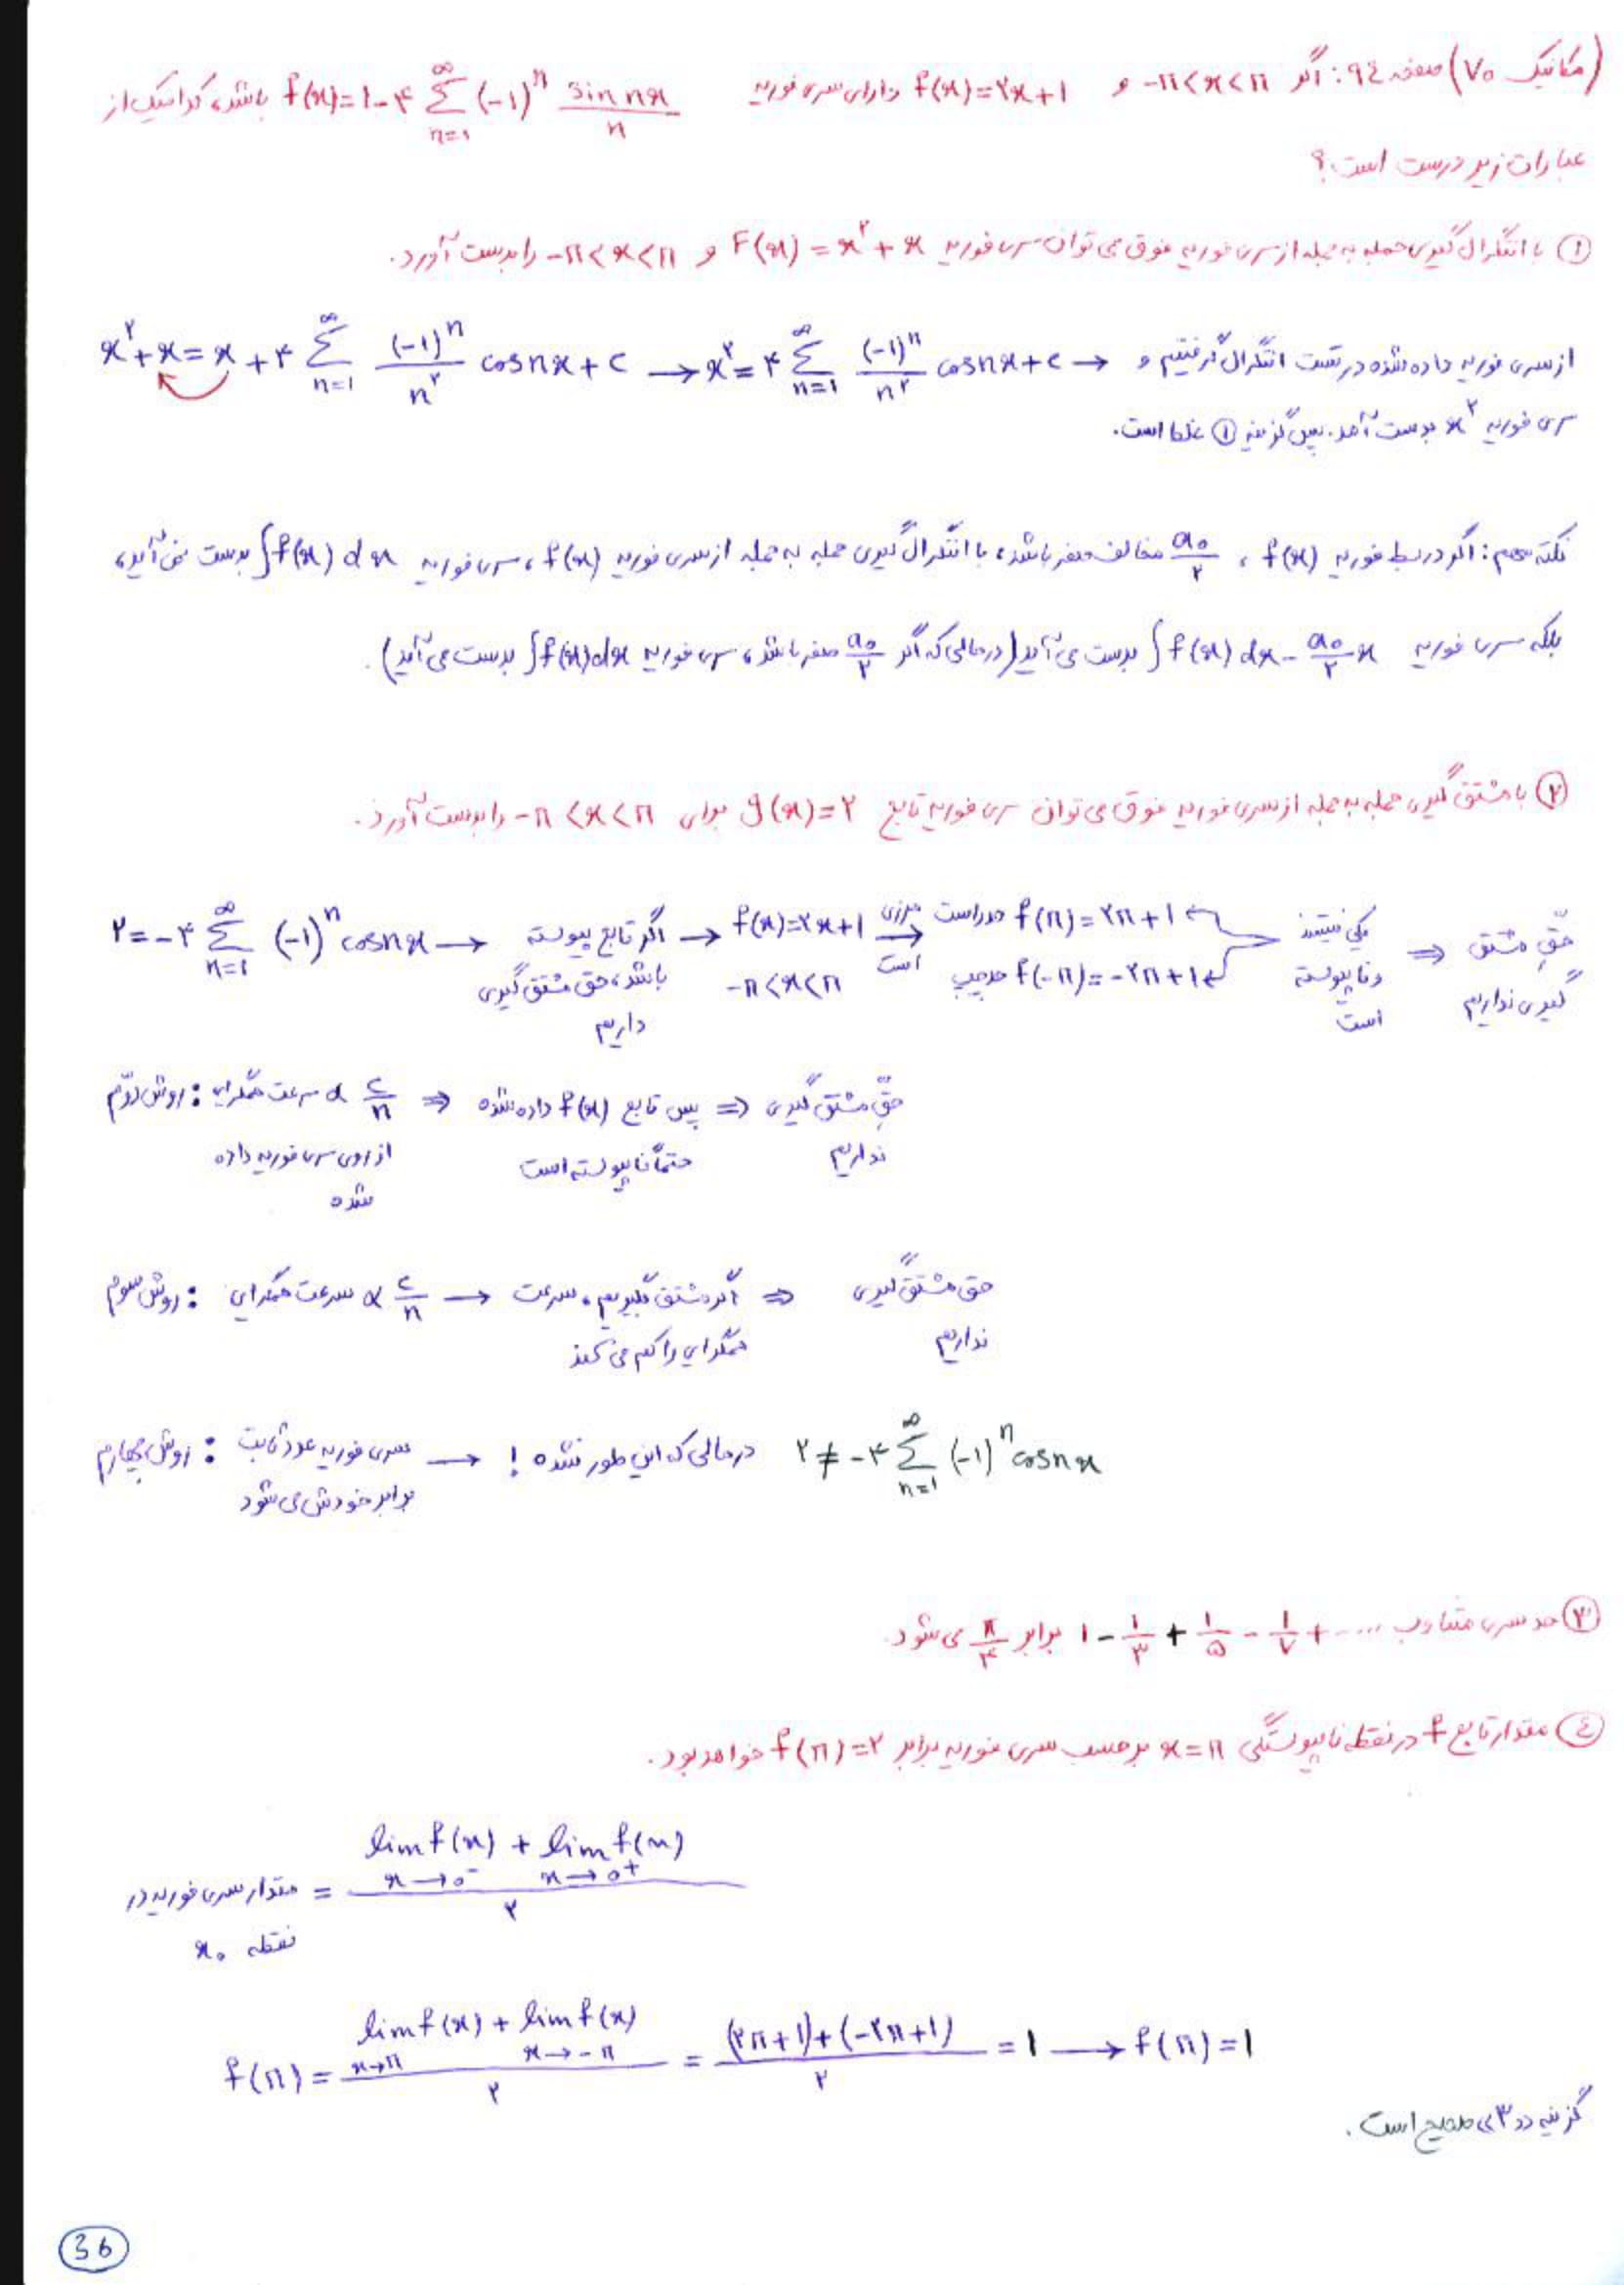 (مکانیک ۷۰) صفحه ۹۴: اگر -π<x<π و f(x)=۲x+۱ دارای سری فوریه f(x)=۱-۴ Σ_{n=1}^{∞} (-۱)^n sin nx / n باشد، کدامیک از
عبارات زیر درست است؟
① با انتگرال گیری جمله به جمله از سری فوریه فوق می توان سری فوریه F(x) = x^۲ + x و -π<x<π را بدست آورد.
x^۲+x = x + ۴ Σ_{n=1}^{∞} (-۱)^n / n^۲ cos nx + c → x^۲ = ۴ Σ_{n=1}^{∞} (-۱)^n / n^۲ cos nx + c → از سری فوریه داده شده در تست انتگرال گرفتیم و
سری فوریه x^۲ بدست آمد. پس گزینه ① غلط است.
نکته مهم: اگر در بسط فوریه f(x)، a₀/۲ مخالف صفر باشد، با انتگرال گیری جمله به جمله از سری فوریه f(x)، سری فوریه ∫f(x) dx بدست نمی آید،
بلکه سری فوریه ∫f(x) dx - a₀/۲ x بدست می آید (درحالی که اگر a₀/۲ صفر باشد، سری فوریه ∫f(x)dx بدست می آید).
② با مشتق گیری جمله به جمله از سری فوریه فوق می توان سری فوریه تابع g(x)=۲ برای -π<x<π را بدست آورد.
۲=-۴ Σ_{n=1}^{∞} (-۱)^n cos nx → اگر تابع پیوسته باشد، حق مشتق گیری داریم → f(x)=۲x+۱ -π<x<π مرزی است → حد راست f(π)=۲π+۱ حد چپ f(-π)=-۲π+۱ یکی نیستند و ناپیوسته است ⇒ حقِ مشتق گیری نداریم
روش دوّم: سرعت همگرایی α c/n از روی سری فوریه داده شده ⇒ پس تابع f(x) داده شده حتماً ناپیوسته است ⇒ حقِّ مشتق گیری نداریم
روش سوم: سرعت همگرایی α c/n → اگر مشتق بگیریم، سرعت همگرایی را کم می کند ⇒ حق مشتق گیری نداریم
روش چهارم: سری فوریه عدد ثابت برابر خودش می شود → درحالی که این طور نشده! ۲ ≠ -۴ Σ_{n=1}^{∞} (-۱)^n cos nx
③ حد سری متناوب ۱ - ۱/۳ + ۱/۵ - ۱/۷ + .... برابر π/۴ می شود.
④ مقدار تابع f در نقطه ناپیوستگی x=π برحسب سری فوریه برابر f(π)=۲ خواهد بود.
مقدار سری فوریه در نقطه x₀ = (lim f(x) x→0⁻ + lim f(x) x→0⁺) / ۲
f(π) = (lim f(x) x→π + lim f(x) x→-π) / ۲ = ((۲π+۱)+(-۲π+۱)) / ۲ = ۱ → f(π)=۱
گزینه «۳» صحیح است.
36